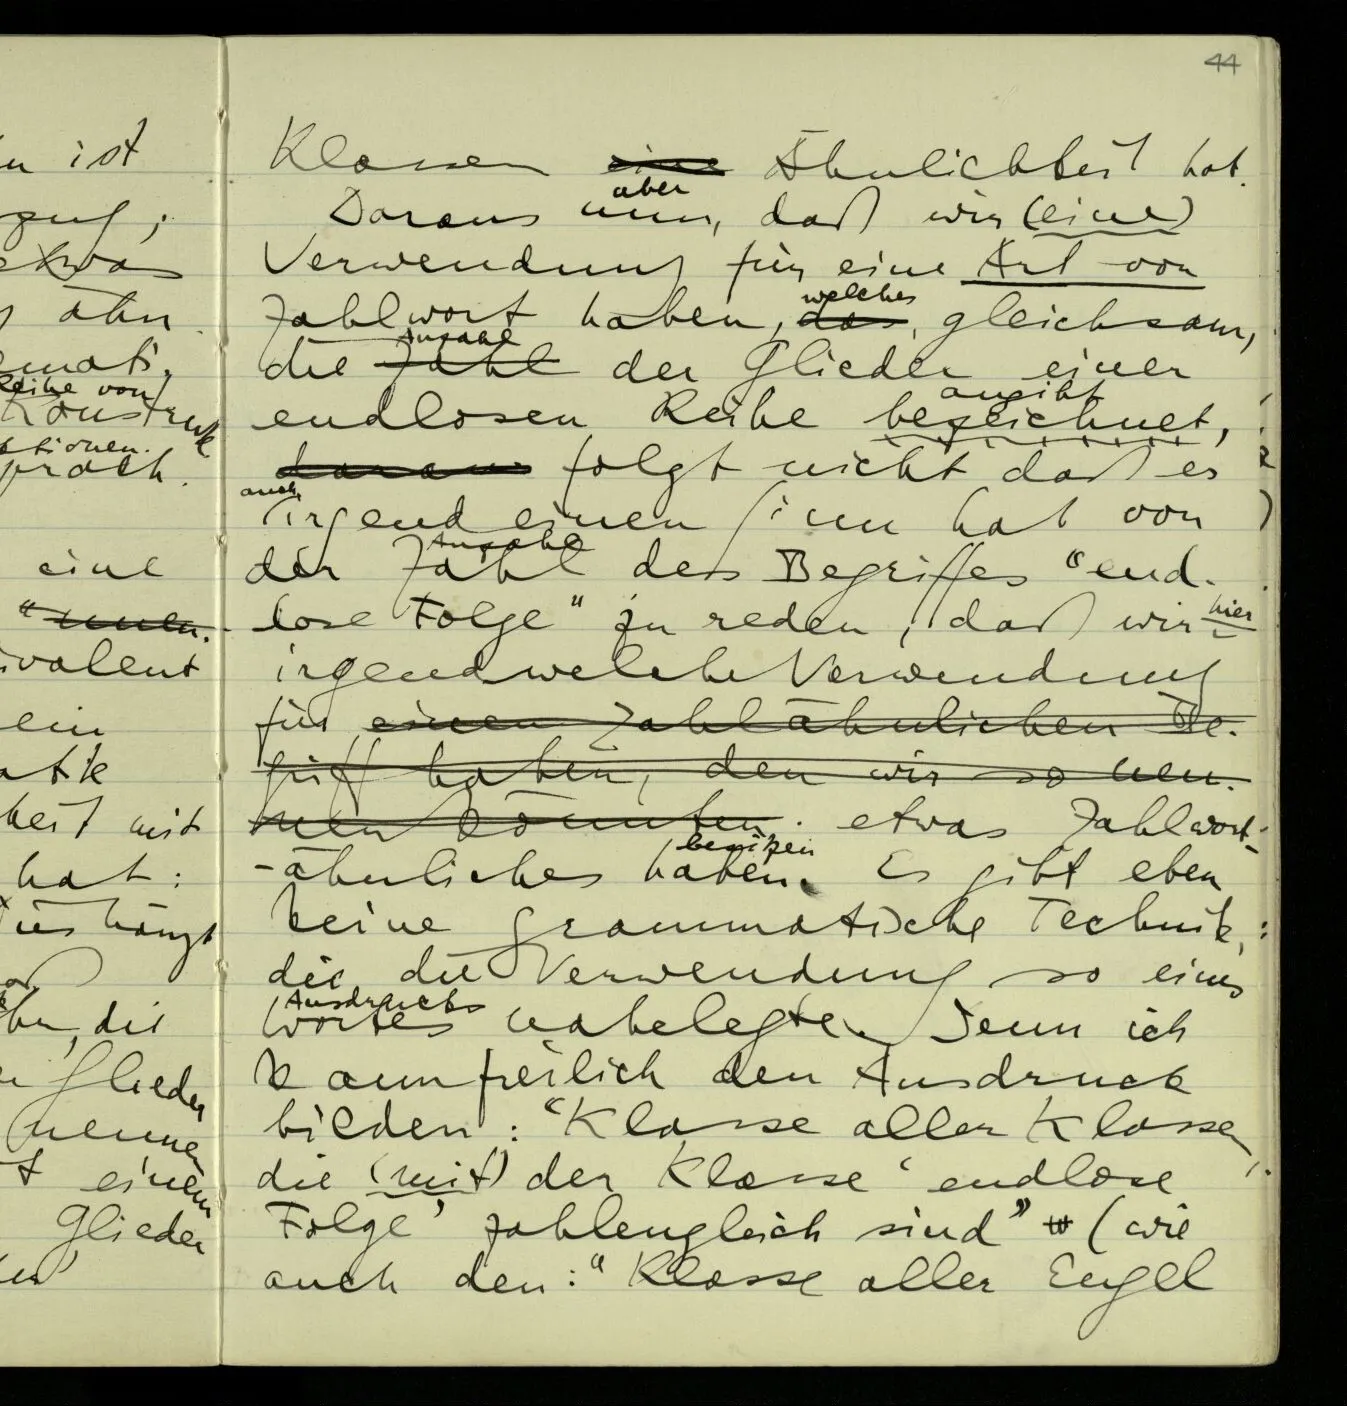 n ist
zug;
etwas
ähn
emati.
Reihe von
Konstruk
ktionen.
sprach.
eine
"
ivalent
ein
atik
keit mit
hat:
uns hängt
, die
Glieder
nennen
t einem
Glieder
44
Klassen eine Ähnlichkeit hat.
aber
Daraus nun, daß wir (eine)
Verwendung für eine Art von
welches
Zahlwort haben, das, gleichsam,
Anzahl
die Zahl der Glieder einer
angibt
endlosen Reihe bezeichnet,
daraus folgt nicht daß es
auch
irgend einen Sinn hat von
Anzahl
der Zahl des Begriffes "end-
lose Folge" zu reden, daß wir hier
irgendwelche Verwendung
für einen zahlähnlichen Be-
griff haben, den wir so nen-
nen könnten. etwas Zahlwort-
besitzen
-ähnliches haben. Es gibt eben
keine grammatische Technik,
die die Verwendung so eines
Ausdrucks
Wortes nahelegte. Denn ich
kann freilich den Ausdruck
bilden: "Klasse aller Klassen,
die (mit) der Klasse 'endlose
Folge' zahlengleich sind" (wie
auch den: "Klasse aller Engel